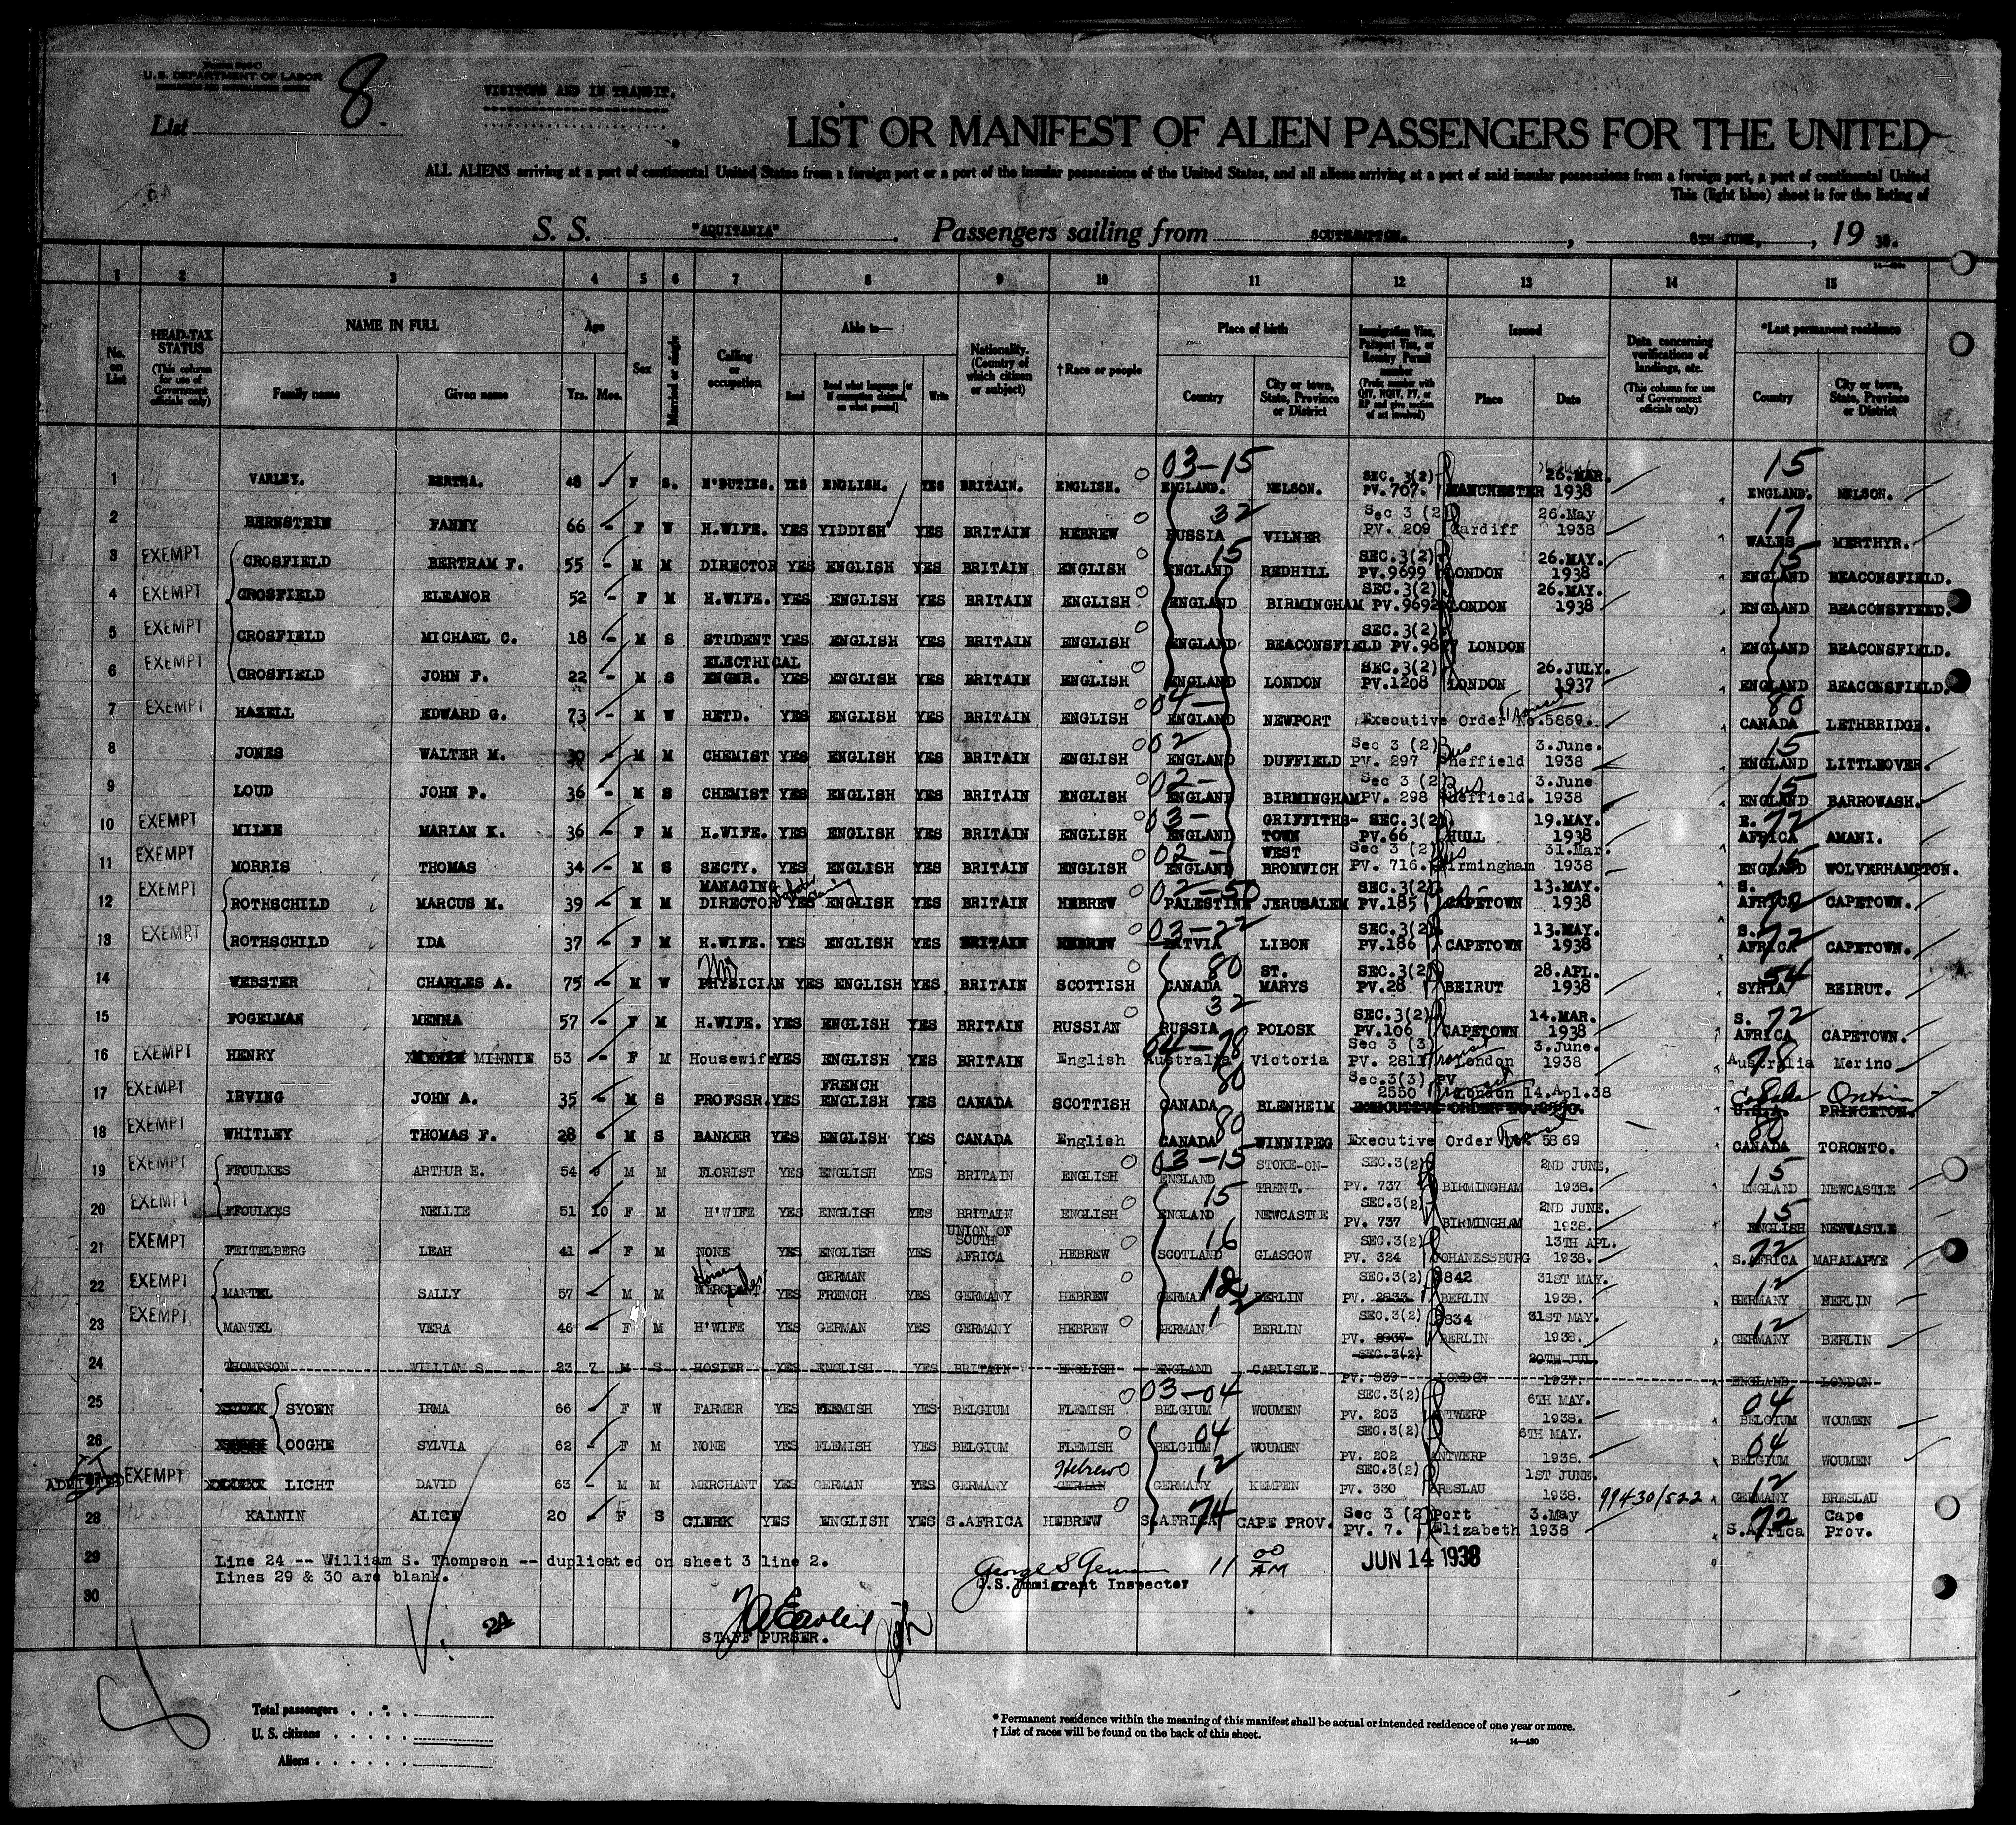 Form 500 C
U.S. DEPARTMENT OF LABOR
List 8.
VISITORS AND IN TRANSIT.
LIST OR MANIFEST OF ALIEN PASSENGERS FOR THE UNITED
ALL ALIENS arriving at a port of continental United States from a foreign port or a port of the insular possessions of the United States, and all aliens arriving at a port of said insular possessions from a foreign port, a port of continental United
This (light blue) sheet is for the listing of
S. S. "AQUITANIA" . Passengers sailing from SOUTHAMPTON. , 8TH JUNE, , 19 38.
1 2 3 4 5 6 7 8 9 10 11 12 13 14 15
No. on List
HEAD-TAX STATUS (This column for use of Government officials only)
NAME IN FULL Family name Given name
Age Yrs. Mos.
Sex
Married or single
Calling or occupation
Able to— Read Read what language [or if exemption claimed, on what ground] Write
Nationality. (Country of which citizen or subject)
†Race or people
Place of birth Country City or town, State, Province or District
Immigration Visa, Passport Visa, or Reentry Permit number (Prefix number with QIV, NQIV, PV, or RP and give section of act involved)
Issued Place Date
Data concerning verifications of landings, etc. (This column for use of Government officials only)
*Last permanent residence Country City or town, State, Province or District
1 VARLEY. BERTHA. 48 - F S. H'DUTIES. YES ENGLISH. YES BRITAIN. ENGLISH. 03-15 ENGLAND. NELSON. SEC. 3(2) PV.707. MANCHESTER 26.MAR. 1938 15 ENGLAND. NELSON.
2 BERNSTEIN FANNY 66 - F W H.WIFE. YES YIDDISH YES BRITAIN HEBREW 32 RUSSIA VILNER Sec 3 (2) PV. 209 Cardiff 26.May 1938 17 WALES MERTHYR.
3 EXEMPT CROSFIELD BERTRAM F. 55 - M M DIRECTOR YES ENGLISH YES BRITAIN ENGLISH 15 ENGLAND REDHILL SEC.3(2) PV.9699 LONDON 26.MAY. 1938 15 ENGLAND BEACONSFIELD.
4 EXEMPT CROSFIELD ELEANOR 52 - F M H.WIFE. YES ENGLISH YES BRITAIN ENGLISH ENGLAND BIRMINGHAM SEC.3(2) PV.9692 LONDON 26.MAY. 1938 ENGLAND BEACONSFIELD.
5 EXEMPT CROSFIELD MICHAEL C. 18 - M S STUDENT YES ENGLISH YES BRITAIN ENGLISH ENGLAND BEACONSFIELD SEC.3(2) LONDON ENGLAND BEACONSFIELD.
6 EXEMPT CROSFIELD JOHN F. 22 - M S ELECTRICAL ENGNR. YES ENGLISH YES BRITAIN ENGLISH ENGLAND LONDON SEC.3(2) PV.1208 LONDON 26.JULY. 1937 ENGLAND BEACONSFIELD.
7 EXEMPT HAZELL EDWARD G. 73 - M W RETD. YES ENGLISH YES BRITAIN ENGLISH 04- ENGLAND NEWPORT Executive Order No.5869. Transit 80 CANADA LETHBRIDGE.
8 JONES WALTER M. 30 - M M CHEMIST YES ENGLISH YES BRITAIN ENGLISH 02 ENGLAND DUFFIELD Sec 3 (2) PV. 297 Bus Sheffield 3.June. 1938 15 ENGLAND LITTLEOVER.
9 LOUD JOHN P. 36 - M S CHEMIST YES ENGLISH YES BRITAIN ENGLISH 02- ENGLAND BIRMINGHAM Sec 3 (2) PV. 298 Bus Sheffield. 3.June 1938 15 ENGLAND BARROWASH.
10 EXEMPT MILNE MARIAN K. 36 - F M H.WIFE. YES ENGLISH YES BRITAIN ENGLISH 03- ENGLAND GRIFFITHS- TOWN SEC.3(2) PV.66 HULL 19.MAY. 1938 72 E. AFRICA AMANI.
11 EXEMPT MORRIS THOMAS 34 - M S SECTY. YES ENGLISH YES BRITAIN ENGLISH 02- ENGLAND WEST BROMWICH Sec 3 (2) PV. 716. Bus Birmingham 31.Mar. 1938 15 ENGLAND WOLVERHAMPTON.
12 EXEMPT ROTHSCHILD MARCUS M. 39 - M M MANAGING DIRECTOR YES ENGLISH YES BRITAIN HEBREW 02-50 PALESTINE JERUSALEM SEC.3(2) PV.185 CAPETOWN 13.MAY. 1938 72 S. AFRICA CAPETOWN.
13 EXEMPT ROTHSCHILD IDA 37 - F M H.WIFE. YES ENGLISH YES BRITAIN HEBREW 03-22 LATVIA LIBON SEC.3(2) PV.186 CAPETOWN 13.MAY. 1938 72 S. AFRICA CAPETOWN.
14 WEBSTER CHARLES A. 75 - M W PHYSICIAN YES ENGLISH YES BRITAIN SCOTTISH 80 CANADA ST. MARYS SEC.3(2) PV.28 BEIRUT 28.APL. 1938 54 SYRIA BEIRUT.
15 FOGELMAN MENNA 57 - F M H.WIFE. YES ENGLISH YES BRITAIN RUSSIAN 32 RUSSIA POLOSK SEC.3(2) PV.106 CAPETOWN 14.MAR. 1938 72 S. AFRICA CAPETOWN.
16 EXEMPT HENRY MINNIE 53 - F M Housewife YES ENGLISH YES BRITAIN English 04-78 Australia Victoria Sec 3 (3) PV. 2811 Transit London 3.June. 1938 78 Australia Merino
17 EXEMPT IRVING JOHN A. 35 - M S PROFSSR. YES FRENCH ENGLISH YES CANADA SCOTTISH 80 CANADA BLENHEIM Sec.3(3) PV 2550 Transit London 14.Apl.38 Canada Ontario U.S.A. PRINCETON.
18 EXEMPT WHITLEY THOMAS F. 28 - M S BANKER YES ENGLISH YES CANADA English 80 CANADA WINNIPEG Executive Order 5869 Transit 80 CANADA TORONTO.
19 EXEMPT FFOULKES ARTHUR E. 54 9 M M FLORIST YES ENGLISH YES BRITAIN ENGLISH 03-15 ENGLAND STOKE-ON- TRENT. SEC.3(2) PV. 737 BIRMINGHAM 2ND JUNE, 1938. 15 ENGLAND NEWCASTLE
20 EXEMPT FFOULKES NELLIE 51 10 F M H'WIFE YES ENGLISH YES BRITAIN ENGLISH 15 ENGLAND NEWCASTLE SEC.3(2) PV. 737 BIRMINGHAM 2ND JUNE. 1938. 15 ENGLISH NEWCASTLE
21 EXEMPT FEITELBERG LEAH 41 - F M NONE YES ENGLISH YES UNION OF SOUTH AFRICA HEBREW 16 SCOTLAND GLASGOW SEC.3(2) PV. 324 JOHANESSBURG 13TH APL. 1938. 72 S.AFRICA MAHALAPYE
22 EXEMPT MANTEL SALLY 57 - M M Hosiery MERCHANT YES GERMAN FRENCH YES GERMANY HEBREW 12 GERMAN BERLIN SEC.3(2) 2842 PV. 2833 BERLIN 31ST MAY. 1938. 12 GERMANY BERLIN
23 EXEMPT MANTEL VERA 46 - F M H'WIFE YES GERMAN YES GERMANY HEBREW 12 GERMAN BERLIN SEC.3(2) 2834 PV. BERLIN 31ST MAY. 1938. 12 GERMANY BERLIN
24 THOMPSON WILLIAM S. 23 7 M S HOSIER YES ENGLISH YES BRITAIN ENGLISH ENGLAND CARLISLE SEC.3(2) PV. 939 LONDON 20TH JUL. 1937. ENGLAND LONDON
25 SYOEN IRMA 66 - F W FARMER YES FLEMISH YES BELGIUM FLEMISH 03-04 BELGIUM WOUMEN SEC.3(2) PV. 203 ANTWERP 6TH MAY. 1938. 04 BELGIUM WOUMEN
26 OOGHE SYLVIA 62 - F M NONE YES FLEMISH YES BELGIUM FLEMISH 04 BELGIUM WOUMEN SEC.3(2) PV. 202 ANTWERP 6TH MAY. 1938. 04 BELGIUM WOUMEN
ADMITTED 27 EXEMPT LICHT DAVID 63 - M M MERCHANT YES GERMAN YES GERMANY Hebrew GERMAN 12 GERMANY KEMPEN SEC.3(2) PV. 330 BRESLAU 1ST JUNE. 1938. 99430/522 12 GERMANY BRESLAU
28 KALNIN ALICE 20 - F S CLERK YES ENGLISH YES S.AFRICA HEBREW 74 S.AFRICA CAPE PROV. Sec 3 (2) PV. 7. Port Elizabeth 3.May 1938 72 S.Africa Cape Prov.
29 Line 24 -- William S. Thompson -- duplicated on sheet 3 line 2.
Lines 29 & 30 are blank.
U.S. Immigrant Inspector
11 00 AM
JUN 14 1938
30
24
STAFF PURSER.
Total passengers . . . .
U. S. citizens . . . . .
Aliens . . . . . . .
* Permanent residence within the meaning of this manifest shall be actual or intended residence of one year or more.
† List of races will be found on the back of this sheet.
14—430